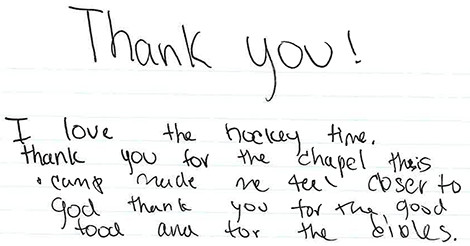 Thank you!
I love the hockey time.
thank you for the chapel this
camp made me feel closer to
god thank you for the good
food and for the bibles.